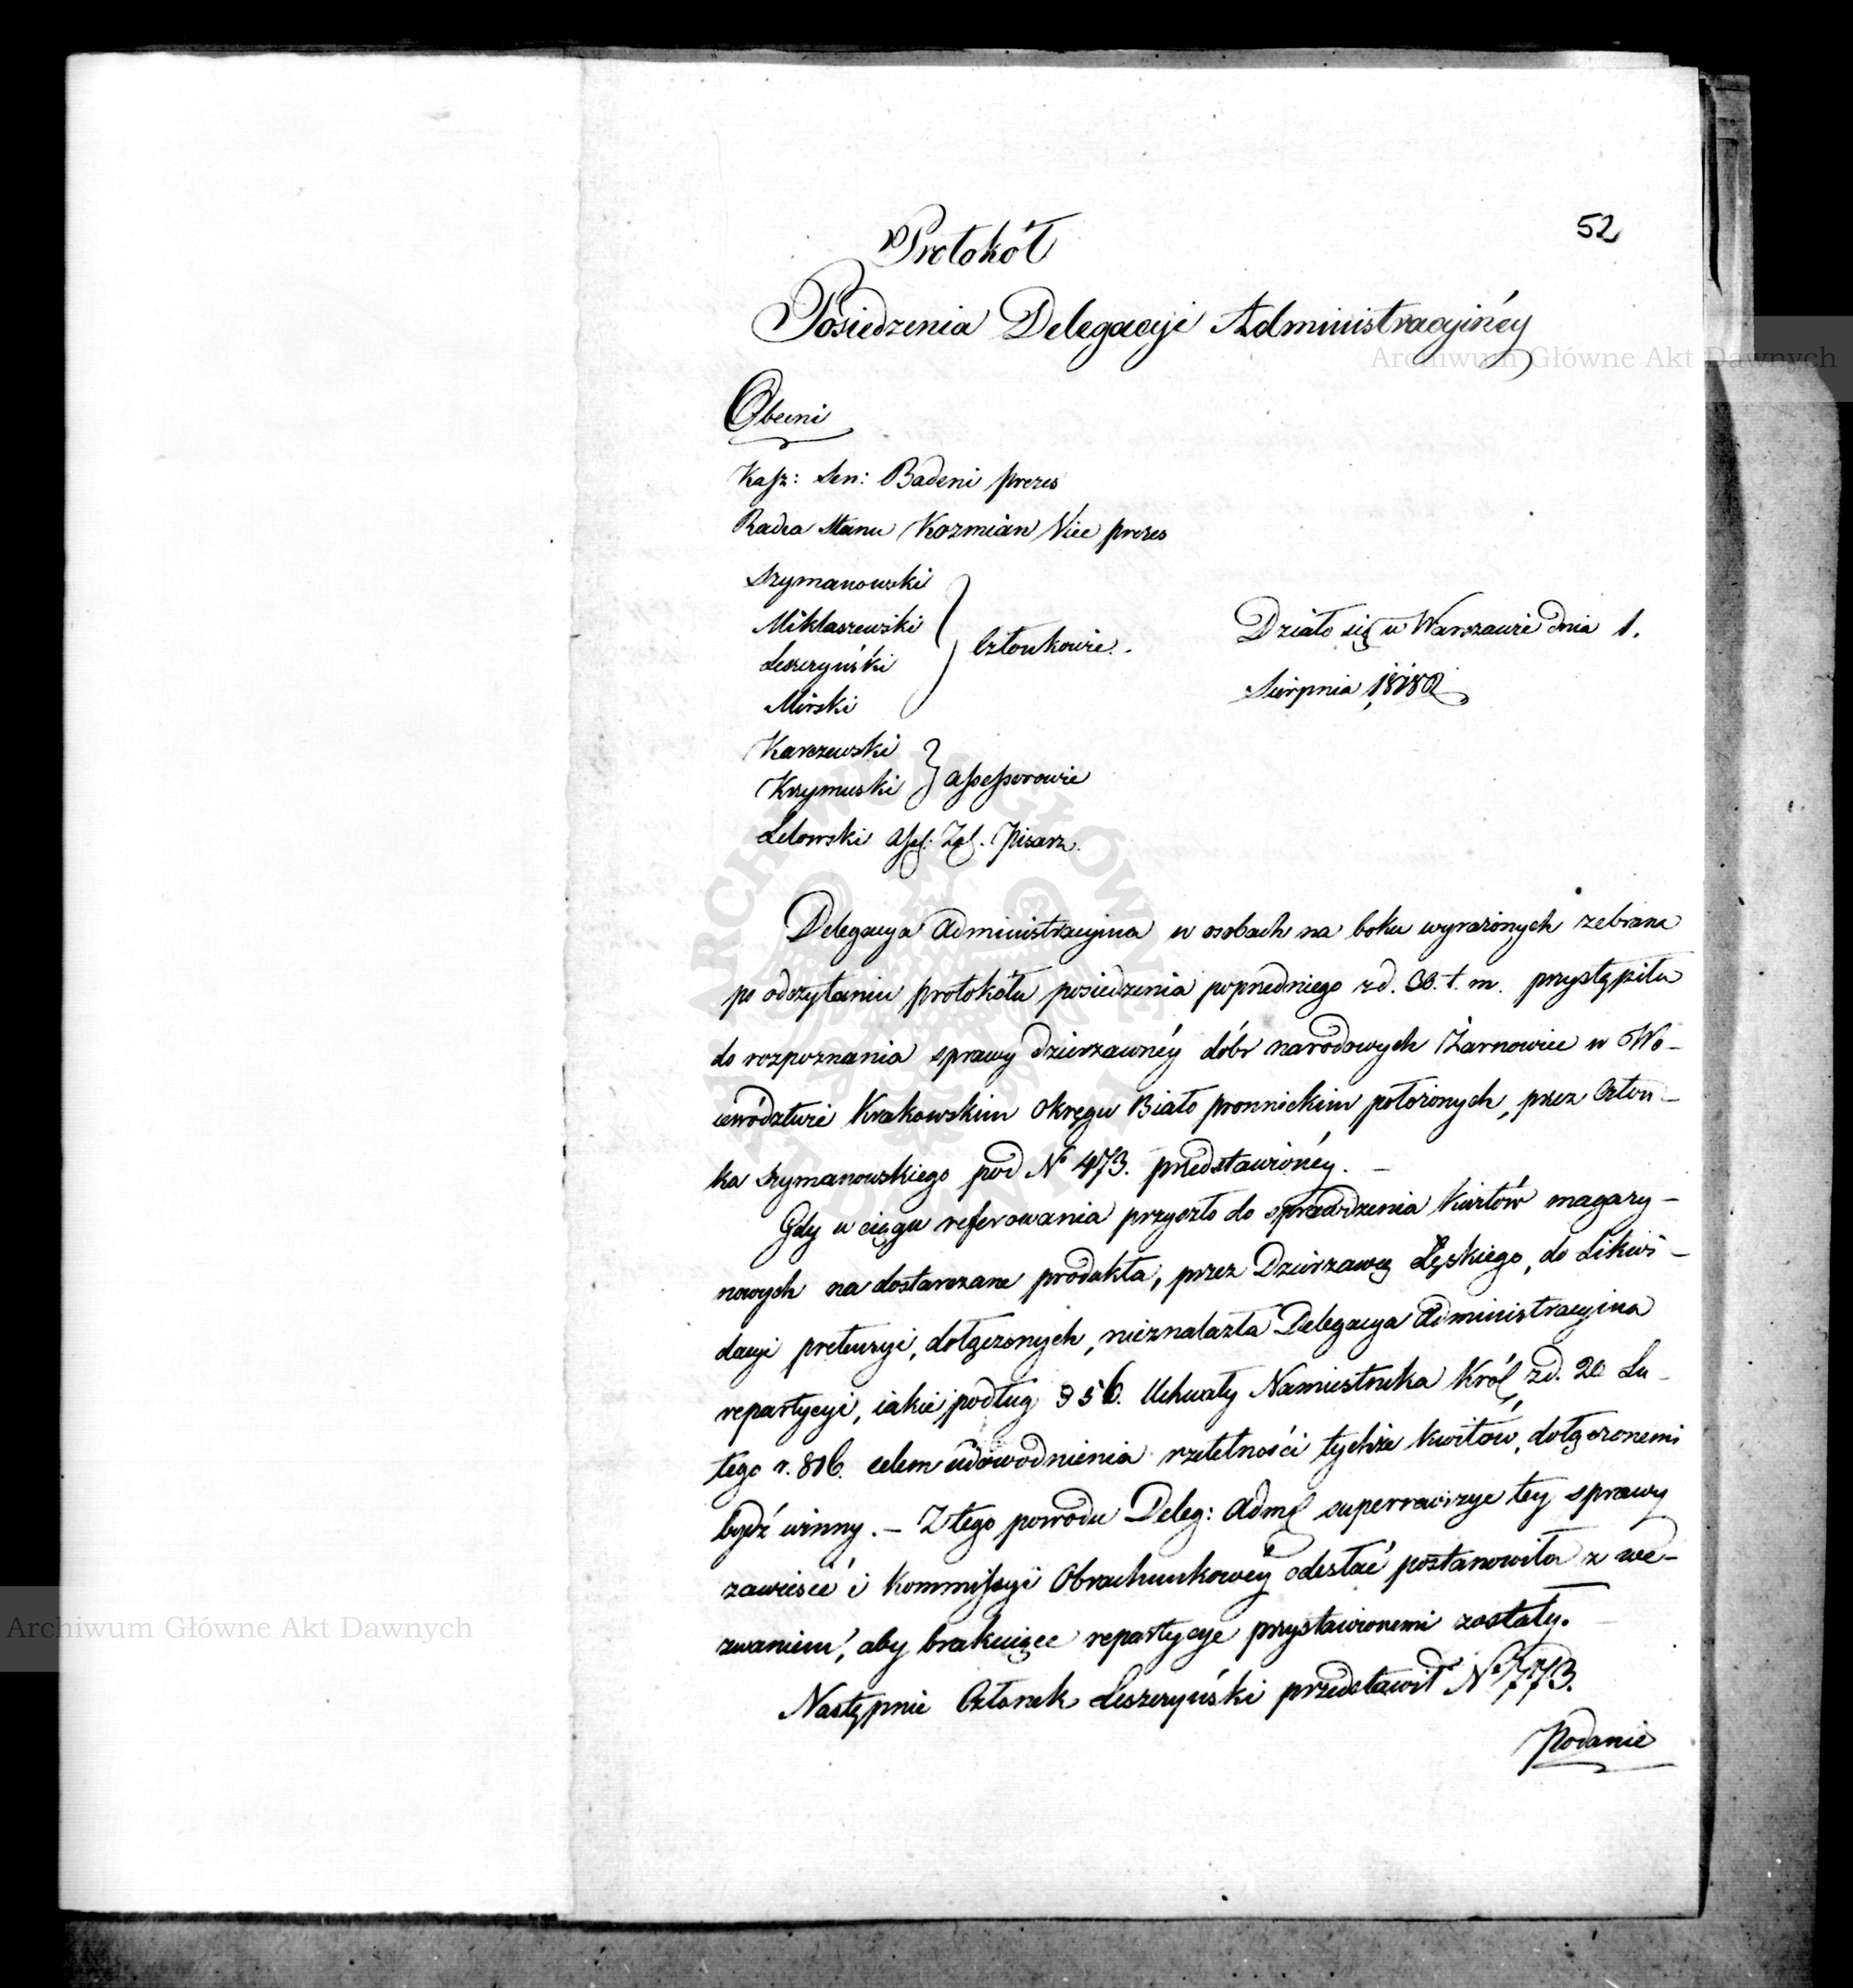 52
Protokół
Posiedzenia Delegacyi Administracyinéy
Obecni
Kasz: Sen: Badeni prezes
Radca Stanu Kozmian Vice prezes
Szymanowski
Miklaszewski
Leszczyński
Mirski
Członkowie.
Działo się w Warszawie dnia 1.
Sierpnia 1818
Karczewski
Krzymuski
assessorowie
Lelowski ass: Zas. Pisarz.
Delegacya Administracyina w osobach na boku wyrażonych zebrana
po odczytaniu protokółu posiedzenia poprzedniego z d. t. m. przystąpiła
do rozpoznania sprawy dzierzawnéy dóbr narodowych Żarnowiec w Wo-
iewództwie Krakowskim Okręgu Biało promnickim położonych, przez Człon-
ka Szymanowskiego pod N° 473. przedstawionéy. —
Gdy w ciągu referowania przyszło do sprawdzenia kwitów magazy-
nowych na dostarczane produkta, przez Dzierzawcę Łęskiego, do Likwi-
dacyi pretensyi, dołączonych, nieznalazła Delegacya Administracyina
repartycyi, iakie podług § 56. Uchwały Namiestnika Król. z d. 20 Lu-
tego r. 816. celem udowodnienia rzetelności tychże kwitów, dołączonemi
bydź winny. — Z tego powodu Deleg: Adm. superrewizye tey sprawy
zawiesić i Kommissyi Obrachunkowéy odesłać postanowiła z we-
zwaniem, aby brakuiące repartycye przystawionemi zostały.
Następnie Członek Leszczyński przedstawił N° 773.
Podanie
Archiwum Główne Akt Dawnych
Archiwum Główne Akt Dawnych